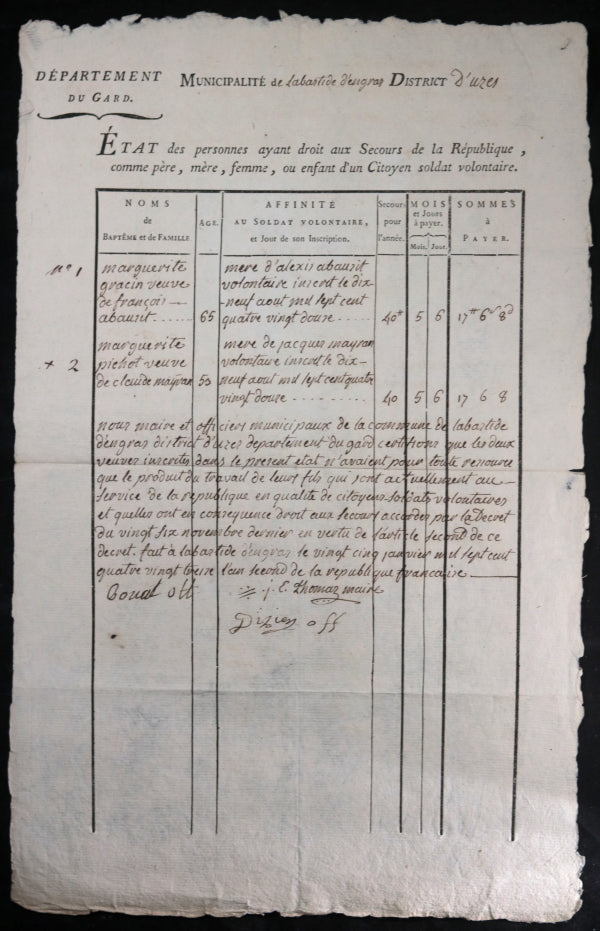 DÉPARTEMENT
DU GARD.
MUNICIPALITÉ de labastide d'engras DISTRICT D'uzes
ÉTAT des personnes ayant droit aux Secours de la République,
comme père, mère, femme, ou enfant d'un Citoyen soldat volontaire.
NOMS
de
BAPTÊME et de FAMILLE
AGE.
AFFINITÉ
AU SOLDAT VOLONTAIRE,
et Jour de son Inscription.
Secours
pour
l'année.
MOIS
et Jours
à payer.
Mois. Jour.
SOMMES
à
PAYER.
nº 1 marguerite mere d'alexis abauzit
gracin veuve volontaire inscrit le dix-
de françois neuf aout mil sept cent
abauzit...... 65 quatre vingt douze ........ 40tt 5 6 17tt 6s 8d
marguerite mere de jacques mayran
+ 2 pichot veuve volontaire inscrit le dix-
de claude mayran 53 neuf aout mil sept cent quatre
vingt douze .......... 40 5 6 17 6 8
nous maire et officiers municipaux de la commune de labastide
d'engras district d'uzes departement du gard certifions que les deux
veuves inscrites dans le present etat n'avaient pour toute ressource
que le produit du travail de leurs fils qui sont actuellement au
service de la republique en qualite de citoyens soldats volontaires
et quelles ont en consequence droit aux secours accordes par la Decret
du vingt six novembre dernier en vertu de l'article second de ce
decret. fait a labastide d'engras le vingt cinq janvier mil sept cent
quatre vingt treise l'an second de la republique francaise
off j. E. Thomas maire
off